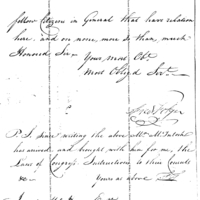 fellow Citizens in General that have relation
here. and on none, more so than, much
Honored Sir
Your most Obt.
Most Obligd Sert.
P.S. since writing the above Mr.
has arrived and brought with him for me, the
Laws of Congress Instructions to their Consuls
&c
Yours as above